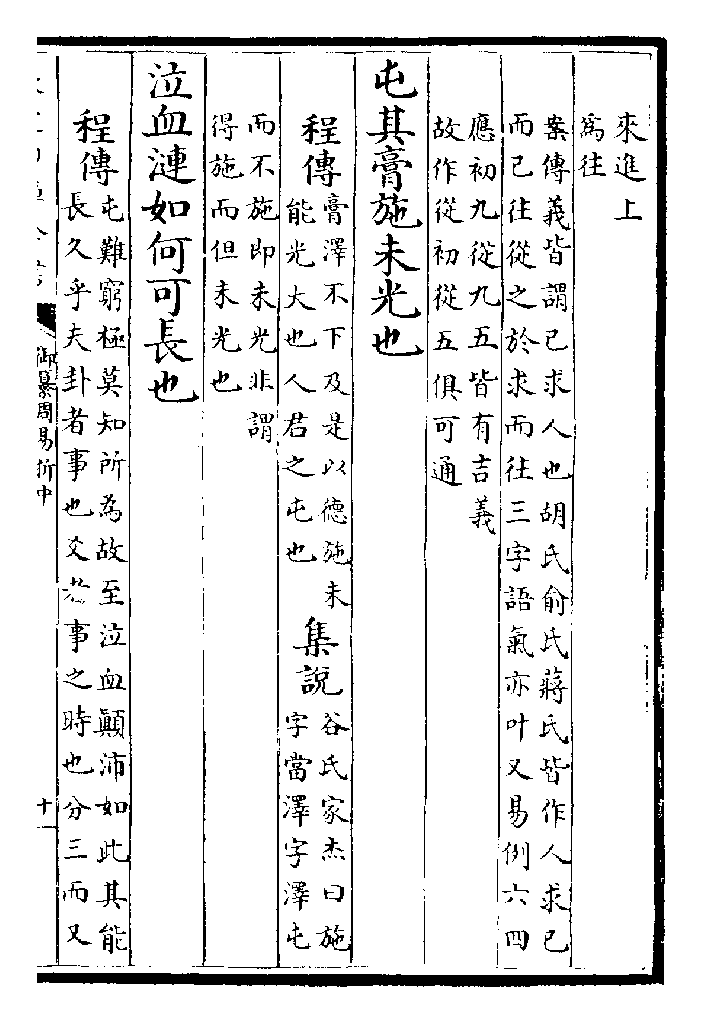 來進上
為往
案傳義皆謂己求人也胡氏俞氏蔣氏皆作人求己
而己往從之於求而往三字語氣亦叶又易例六四
應初九從九五皆有吉義
故作從初從五俱可通
屯其膏施未光也
程傳
膏澤不下及是以德施未
能光大也人君之屯也
集說
谷氏家杰曰施
字當澤字澤屯
而不施即未光非謂
得施而但未光也
泣血漣如何可長也
程傳
屯難窮極莫知所為故至泣血顚沛如此其能
長久乎夫卦者事也爻者事之時也分三而又
御纂周易折中
十一